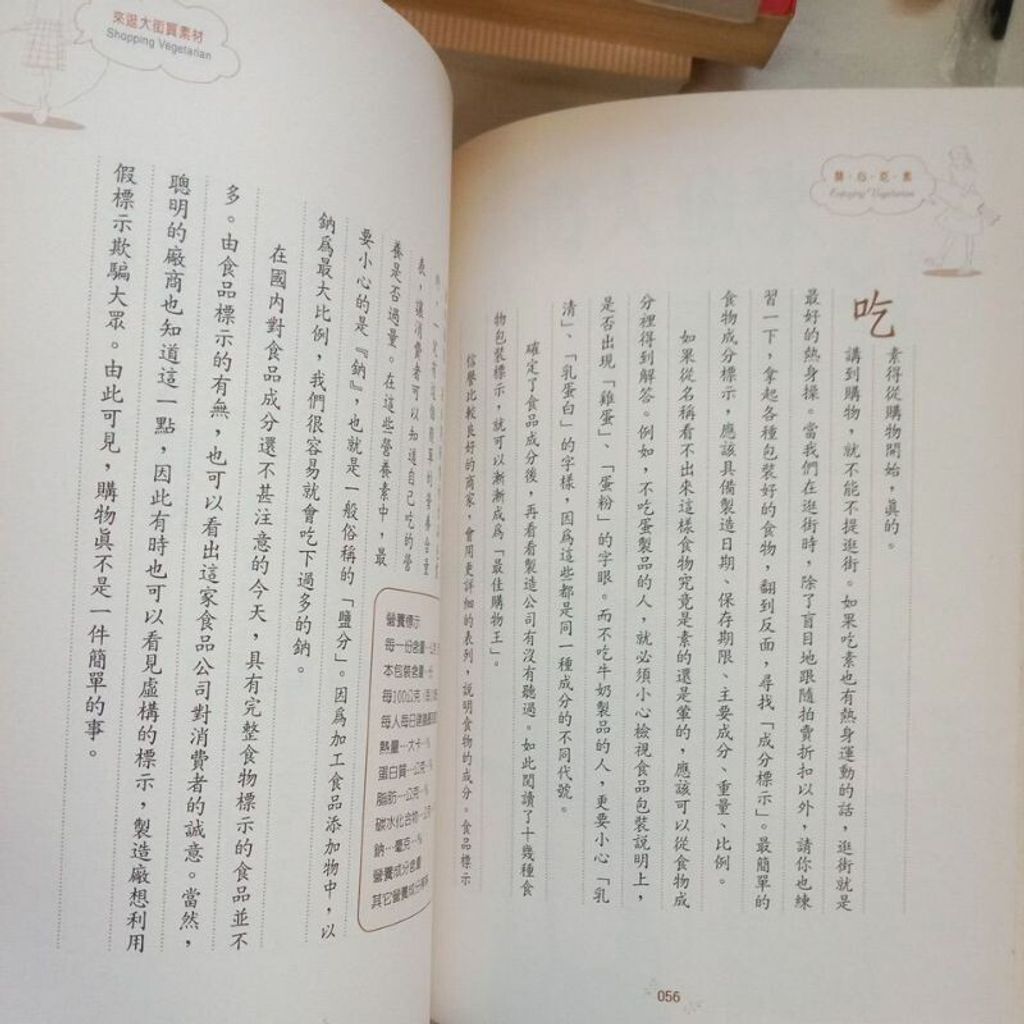 Enjoying Vegetarian
吃
素得從購物開始，真的。
講到購物，就不能不提逛街。如果吃素也有熱身運動的話，逛街就是
最好的熱身操。當我們在逛街時，除了盲目地跟隨拍賣折扣以外，請你也練
習一下，拿起各種包裝好的食物，翻到反面，尋找「成分標示」。最簡單的
食物成分標示，應該具備製造日期、保存期限、主要成分、重量、比例。
如果從名稱看不出來這樣食物究竟是素的還是葷的，應該可以從食物成
分裡得到解答。例如，不吃蛋製品的人，就必須小心檢視食品包裝說明上，
是否出現「雞蛋」、「蛋粉」的字眼。而不吃牛奶製品的人，更要小心「乳
清」、「乳蛋白」的字樣，因爲這些都是同一種成分的不同代號。
確定了食品成分後，再看看製造公司有沒有聽過。如此閱讀了十幾種食
物包裝標示，就可以漸漸成爲「最佳購物王」。
信譽比較良好的商家，會用更詳細的表列，說明食物的成分。食品標示
056
來逛大街買素材
Shopping Vegetarian
表，讓消費者可以知道自己吃的營
養是否過量。在這些營養素中，最
要小心的是『鈉』，也就是一般俗稱的「鹽分」。因爲加工食品添加物中，以
鈉爲最大比例，我們很容易就會吃下過多的鈉。
在國內對食品成分還不甚注意的今天，具有完整食物標示的食品並不
多。由食品標示的有無，也可以看出這家食品公司對消費者的誠意。當然，
聰明的廠商也知道這一點，因此有時也可以看見虛構的標示，製造廠想利用
假標示欺騙大眾。由此可見，購物真不是一件簡單的事。
營養標示
每一份含量
本包裝含量
每100公克
每人每日
熱量…大卡
蛋白質…公克
脂肪…公克
碳水化合物
鈉…毫克
營養成分含量
其它營養成分